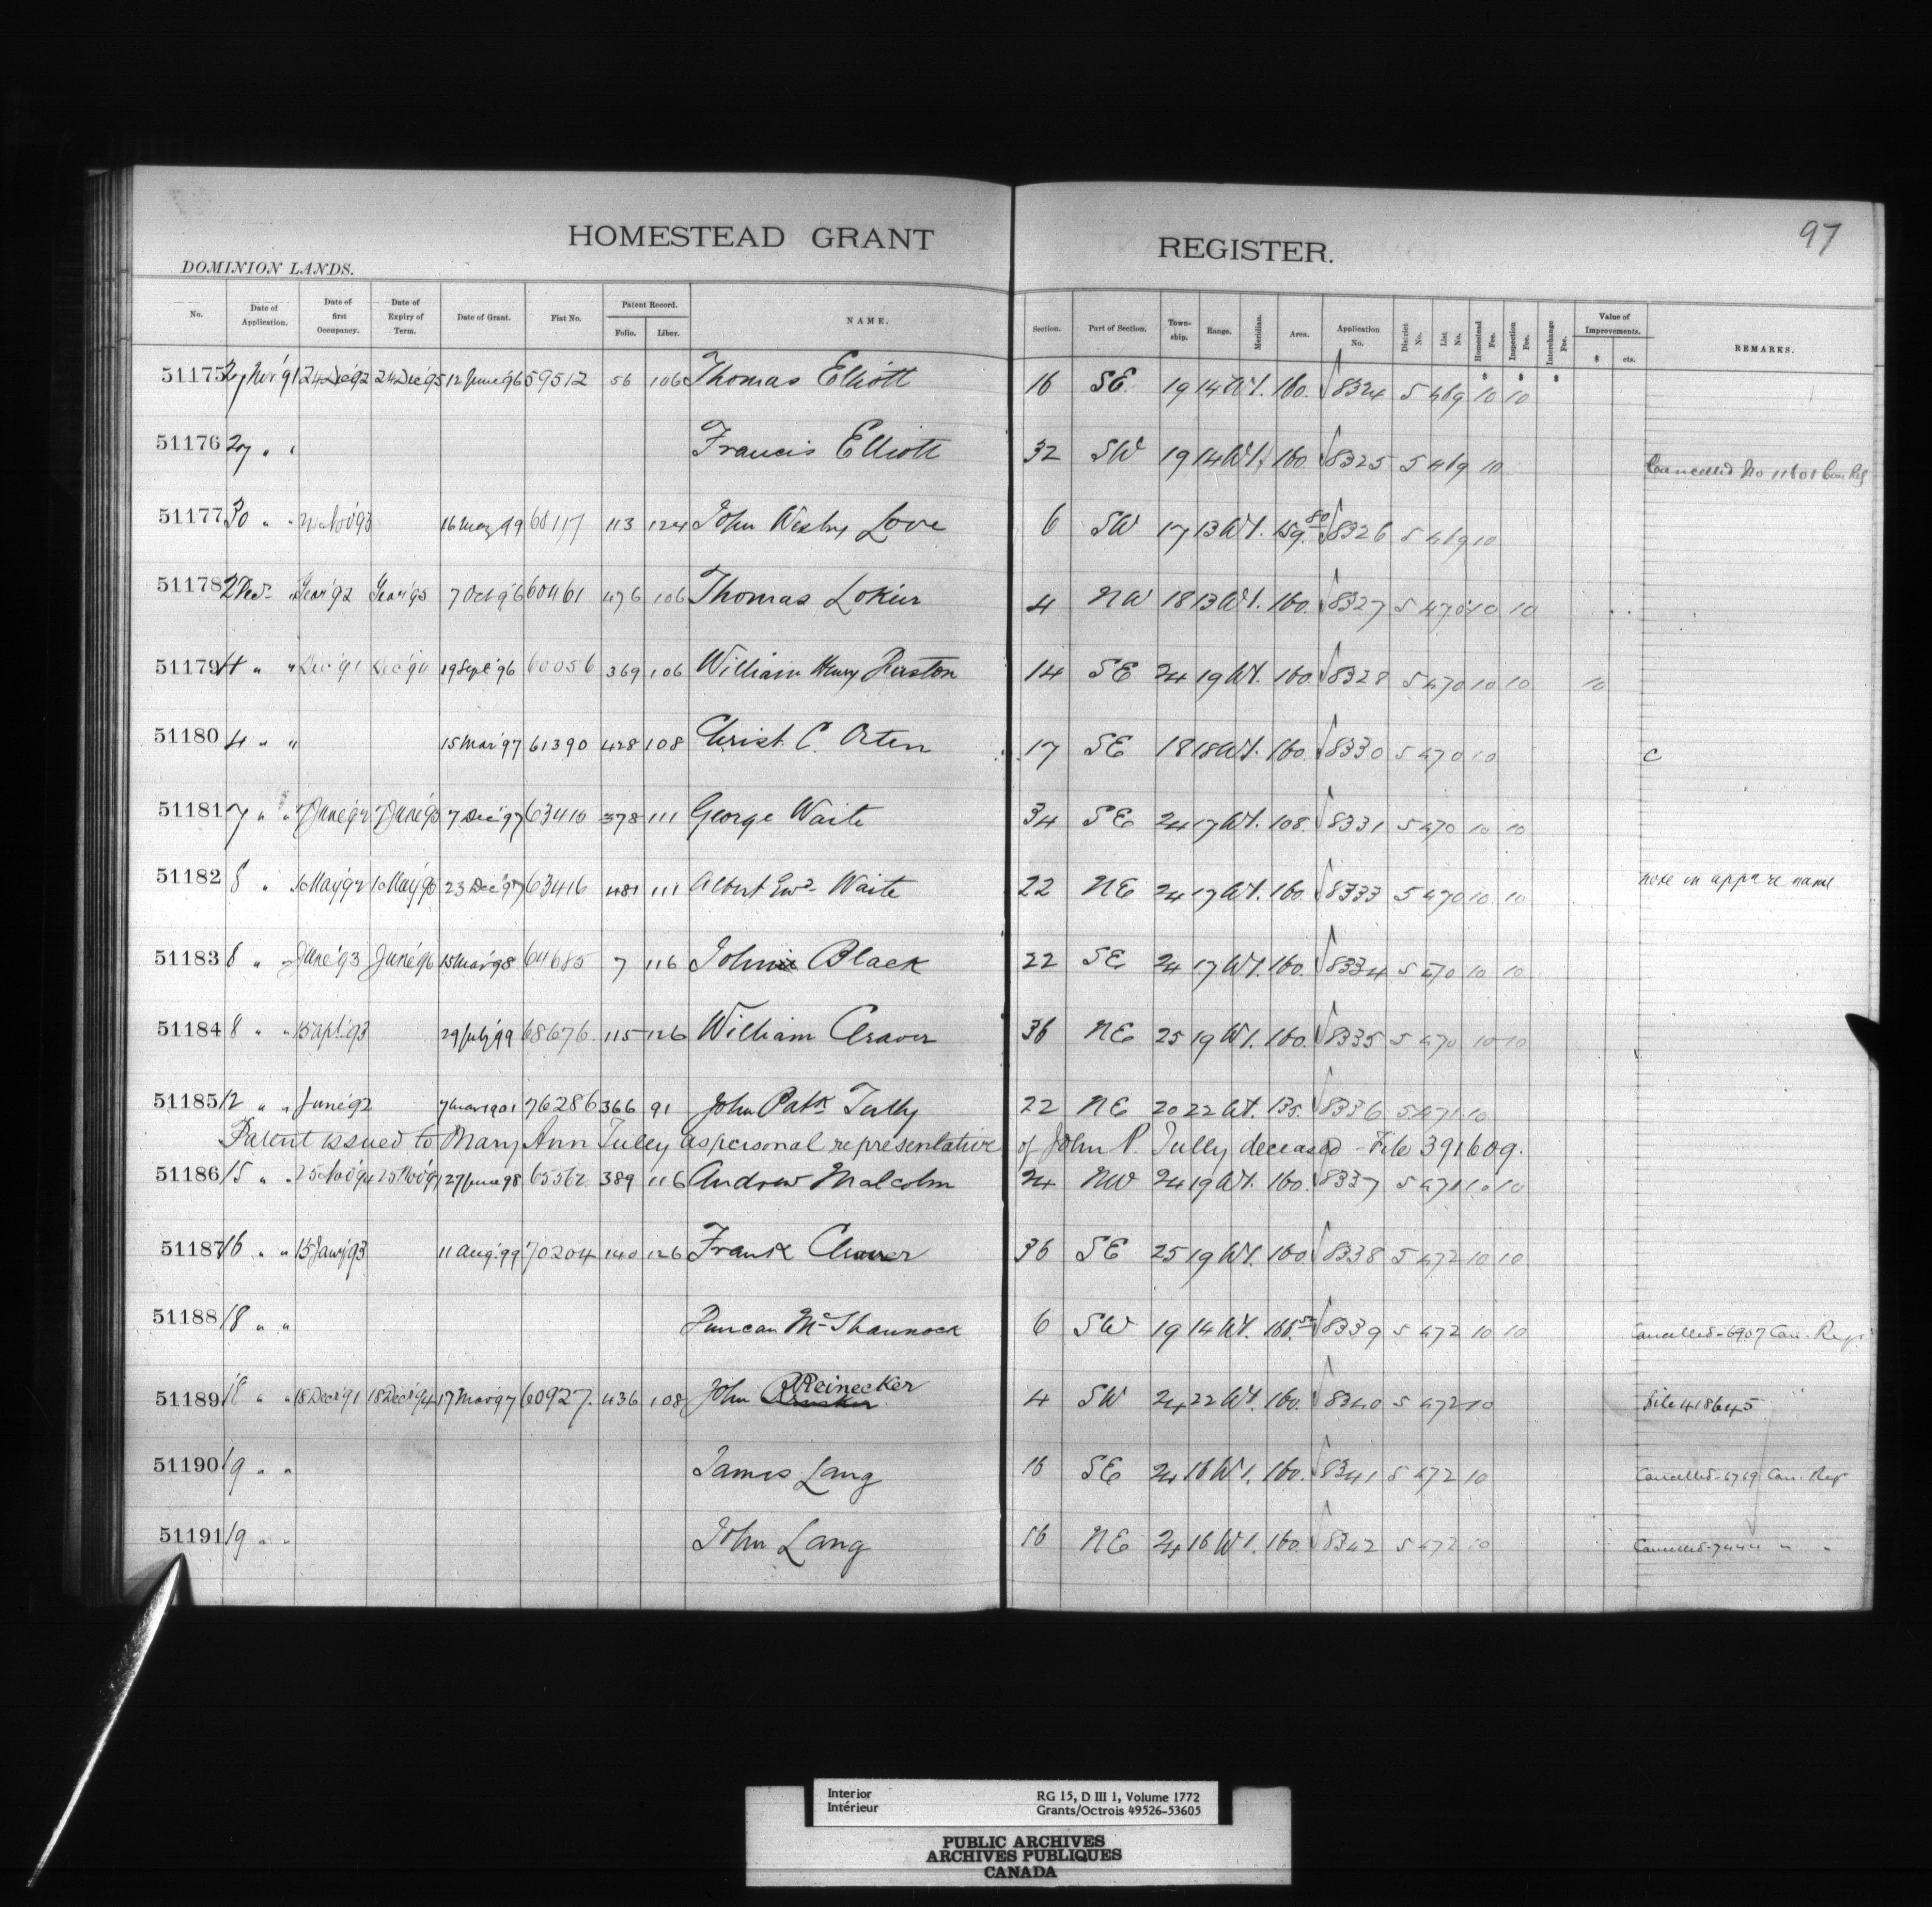 97
HOMESTEAD GRANT REGISTER.
DOMINION LANDS.
No. Date of Application. Date of first Occupancy. Date of Expiry of Term. Date of Grant. Fiat No. Patent Record. Folio. Liber. NAME. Section. Part of Section. Town-ship. Range. Meridian. Area. Application No. District No. List No. Homestead Fee. Inspection Fee. Interchange Fee. Value of Improvements. $ cts. REMARKS.
$ $ $
51175 27 Nov '91 24 Dec '92 24 Dec '95 12 June '96 59512 56 106 Thomas Elliott 16 SE 19 14 W1. 160. 8324 5 469 10 10
51176 27 " " Francis Elliott 32 SW 19 14 W1. 160 8325 5 469 10 Cancelled No 11601 Can Reg
51177 30 " " 16 May 99 68117 113 124 John Wesley Love 6 SW 17 13 W1. 159.80 8326 5 469 10
51178 2 Dec " '92 '95 7 Oct 96 60461 476 106 Thomas 4 NW 18 13 W1. 160. 8327 5 470 10 10
51179 4 " " Dec '91 Dec '94 19 Sept '96 60056 369 106 William Henry 14 SE 24 19 W1. 160. 8328 5 470 10 10 10
51180 4 " " 15 Mar '97 61390 428 108 Christ. C. Orten 17 SE 18 18 W1. 160. 8330 5 470 10 C
51181 7 " " 7 June '92 7 June '95 7 Dec '97 63415 378 111 George Waite 34 SE 24 17 W1. 108. 8331 5 470 10 10
51182 8 " 10 May '92 10 May '95 23 Dec '97 63416 481 111 Albert Ewd Waite 22 NE 24 17 W1. 160. 8333 5 470 10 10 note on appn re name
51183 8 " " June '93 June '96 15 Mar '98 64685 7 116 John Black 22 SE 24 17 W1. 160. 8334 5 470 10 10
51184 8 " " 15 Apl '93 29 July '99 68676 115 126 William Cleaver 36 NE 25 19 W1. 160. 8335 5 470 10 10
51185 12 " " June '92 7 Mar 1901 76286 366 91 John Patk Tully 22 NE 20 22 W1. 135. 8336 5 471 10
Patent issued to Mary Ann Tully as personal representative of John P. Tully deceased - File 391609.
51186 15 " " 25 Nov '94 25 Nov '97 27 June 98 65562 389 116 Andrew Malcolm 24 NW 24 19 W1. 160. 8337 5 471 10 10
51187 16 " " 15 Jany '93 11 Aug. 99 70204 140 126 Frank Cleaver 36 SE 25 19 W1. 160. 8338 5 472 10 10
51188 18 " " Duncan McShannock 6 SW 19 14 W1. 8339 5 472 10 10 Cancelled - 6907 Can. Regr
51189 18 " " 18 Decr '91 18 Decr '94 17 Mar '97 60927. 436 108 John Reinecker 4 SW 24 22 W1. 160. 8340 5 472 10 File 418645
51190 19 " " James Lang 16 SE 24 16 W1. 160. 8341 5 472 10 Cancelled - 6769 Can. Regr
51191 19 " " John Lang 16 NE 24 16 W1. 160. 8342 5 472 10 Cancelled - 7444 " "
Interior RG 15, D III 1, Volume 1772
Intérieur Grants/Octrois 49526-53605
PUBLIC ARCHIVES
ARCHIVES PUBLIQUES
CANADA